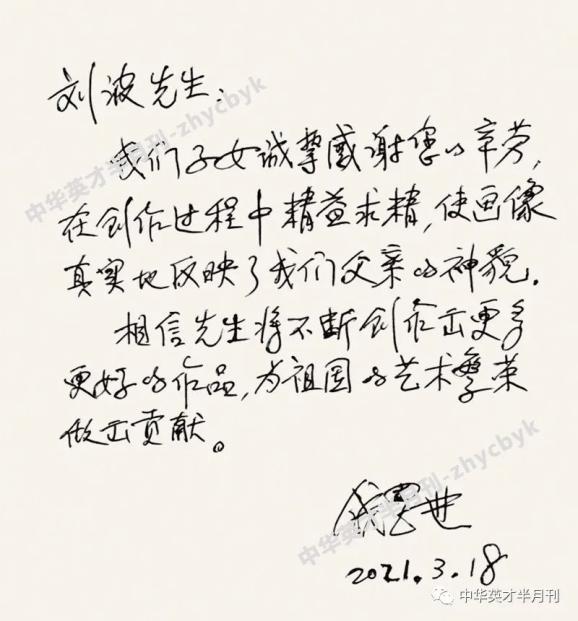 刘波先生:
我们子女诚挚感谢您的辛劳,
在创作过程中精益求精,使画像
真实地反映了我们父亲的神貌.
相信先生将不断创作出更多
更好的作品,为祖国的艺术繁荣
做出贡献。
2021.3.18
中华英才半月刊-zhycbyk
中华英才半月刊-zhycbyk
中华英才半月刊